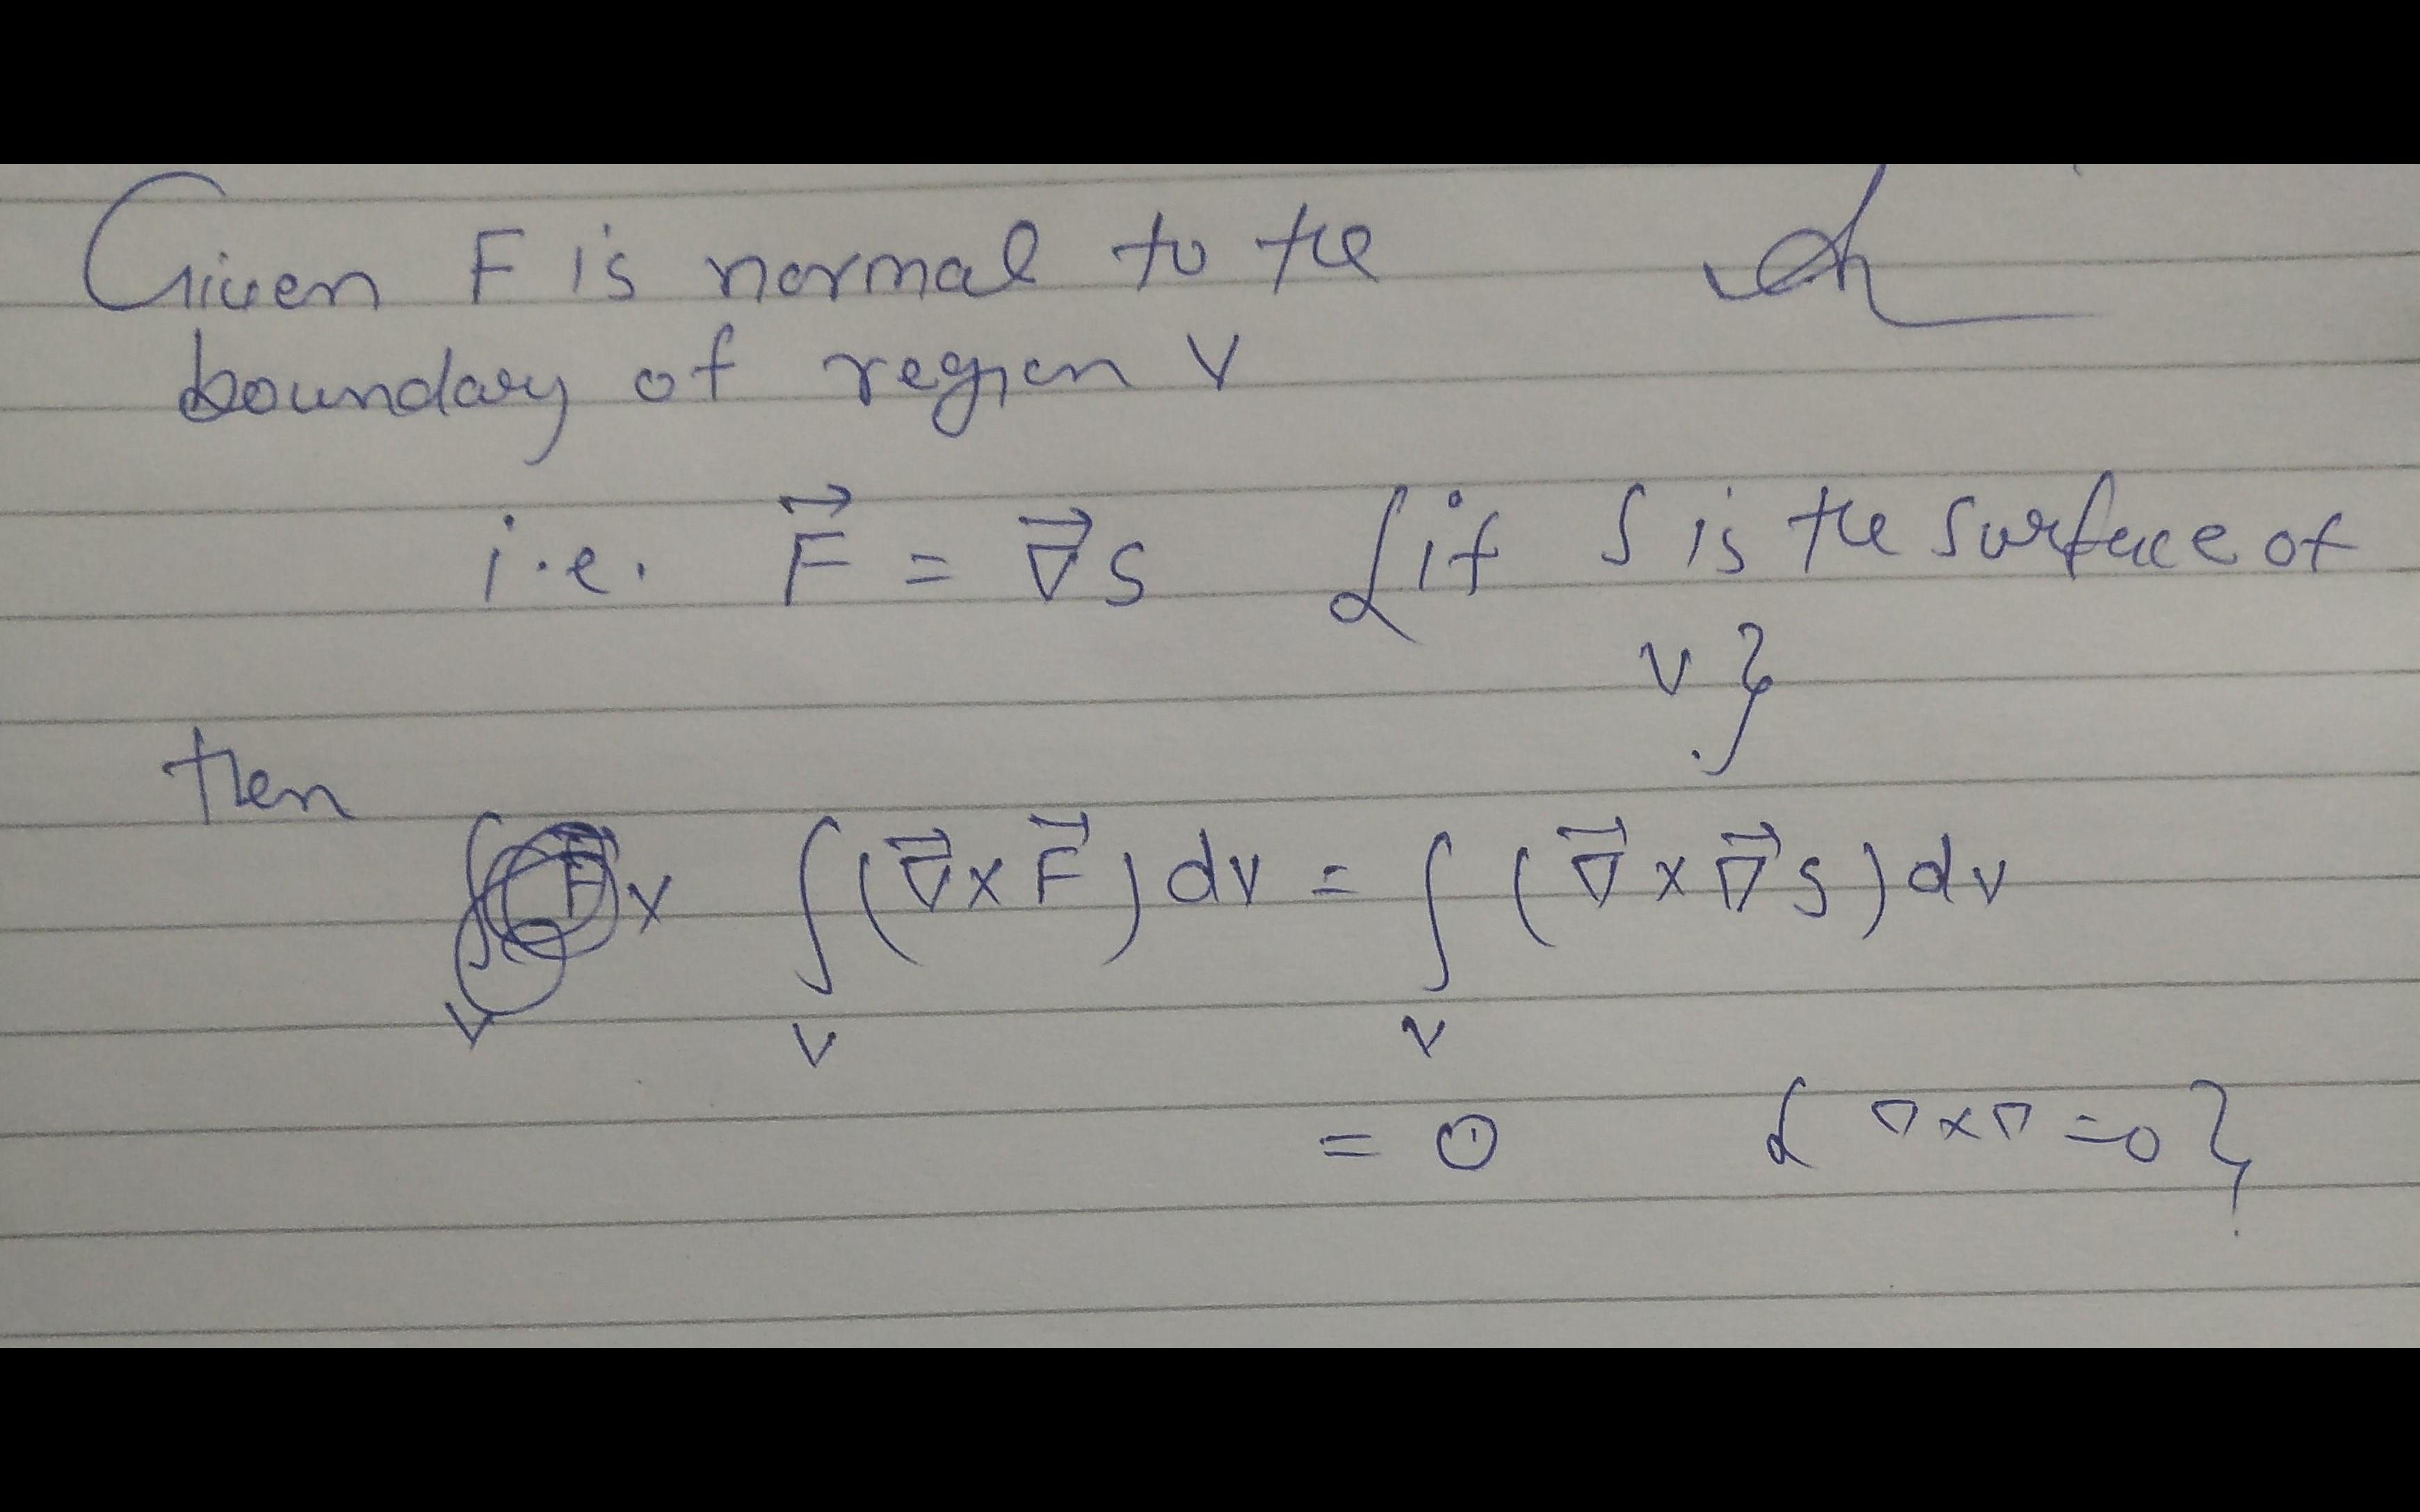 Given F is normal to the
boundary of region V
i.e. F⃗ = ∇⃗S {if S is the surface of
V}
then
∫(∇⃗×F⃗)dv = ∫(∇⃗×∇⃗S)dv
V V
= 0 {∇×∇=0}